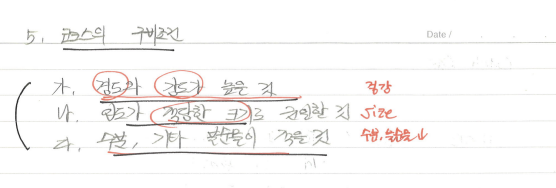 5. 코크스의 구비조건
Date /
가. 경도와 강도가 높은 것 경강
나. 입도가 적당한 크기로 균일한 것 size
다. 수분, 기타 불순물이 적을 것 수분, 불순물↓